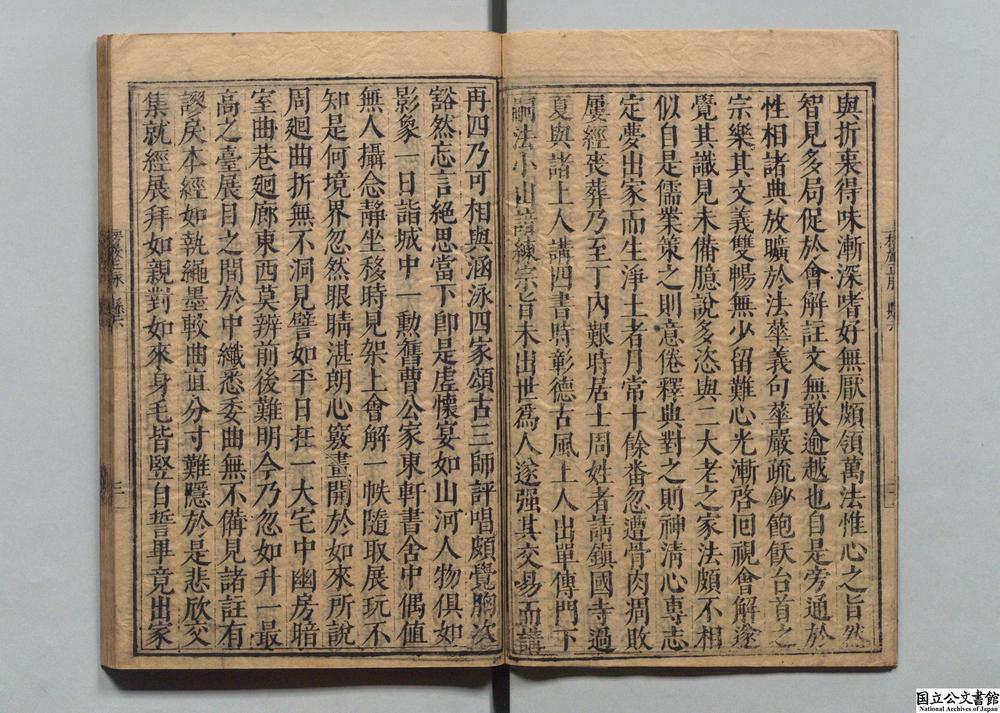 與折衷得味漸深嗜好無厭頗領萬法惟心之旨然
智見多局促於會解註文無敢逾越也自是旁通於
性相諸典放曠於法華義句華嚴疏鈔飽飫台首之
宗樂其文義雙暢無少留難心光漸啓回視會解遂
覺其識見未備臆說多恣與二大老之家法頗不相
似自是儒業策之則意倦釋典對之則神清心專志
定要出家而生淨土者月常十餘番忽遭骨肉凋敗
屢經喪葬乃至丁內艱時居士周姓者請鎮國寺過
夏與諸上人講四書時彰德古風上人出單傳門下
嗣法小山諳練宗旨未出世爲人遂强其交易而講
再四乃可相與涵泳四家頌古三師評唱頗覺胸次
豁然忘言絕思當下卽是虛懷宴如山河人物俱如
影象一日詣城中一勳舊曹公家東軒書舍中偶値
無人攝念靜坐移時見架上會解一帙隨取展玩不
知是何境界忽然眼睛湛朗心竅畫開於如來所說
周廻曲折無不洞見譬如平日在一大宅中幽房暗
室曲巷廻廊東西莫辨前後難明今乃忽如升一最
高之臺展目之間於中纖悉委曲無不備見諸註有
謬戾本經如執繩墨較曲直分寸難隱於是悲欣交
集就經展拜如親對如來身毛皆竪白誓畢竟出家
国立公文書館
National Archives of Japan